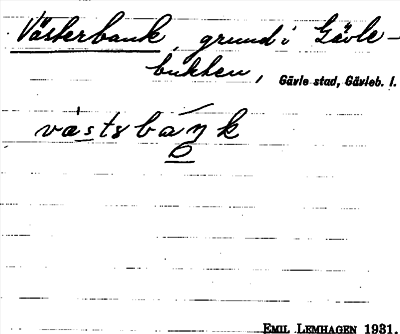 Västerbank, grund i Gävle-
bukten, Gävle stad, Gävleb. l.
västsbáŋk
EMIL LEMHAGEN 1931.